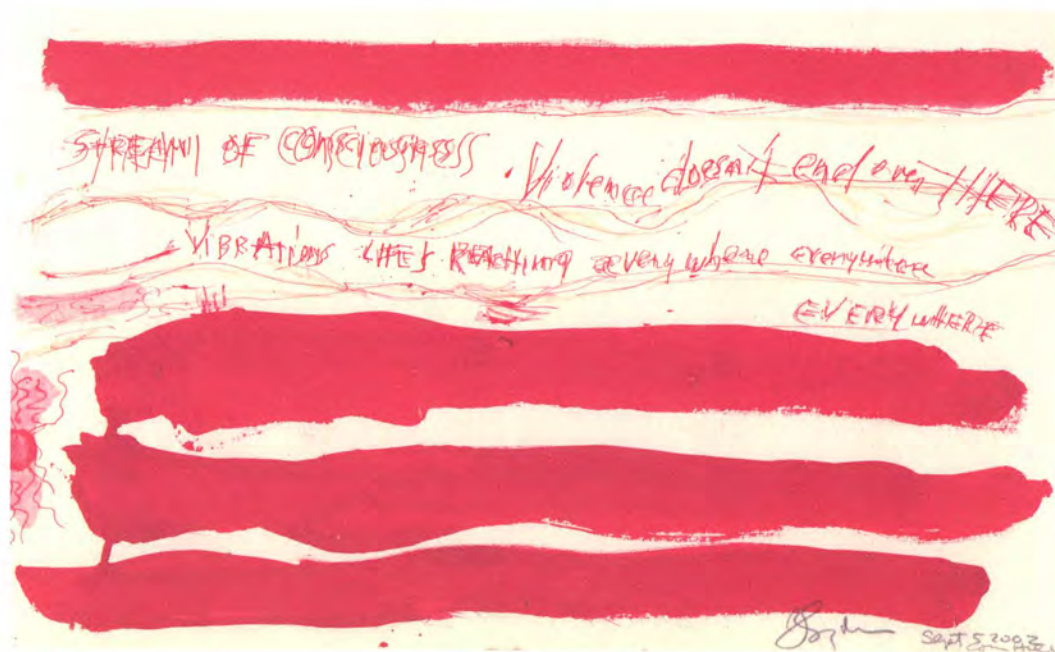 STREAM OF CONSCIOUSNESS. Violence doesn't end over THERE
VIBRATIONS LINES REACHING everywhere everywhere
EVERYWHERE
Sept 5 2002